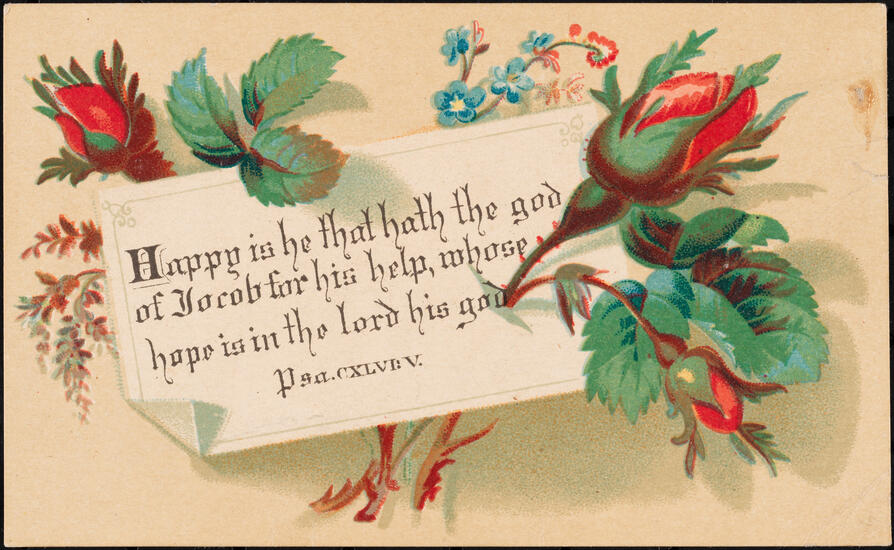 Happy is he that hath the god
of Jocob for his help, whose
hope is in the lord his god
Psa. CXLVI: V.